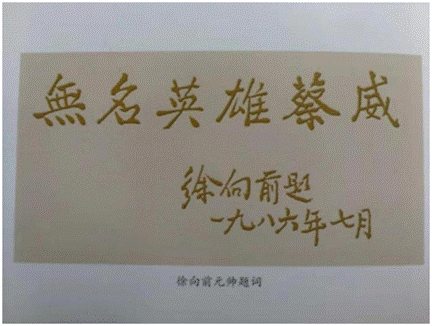 無名英雄蔡威
徐向前题
一九八六年七月
徐向前元帅题词